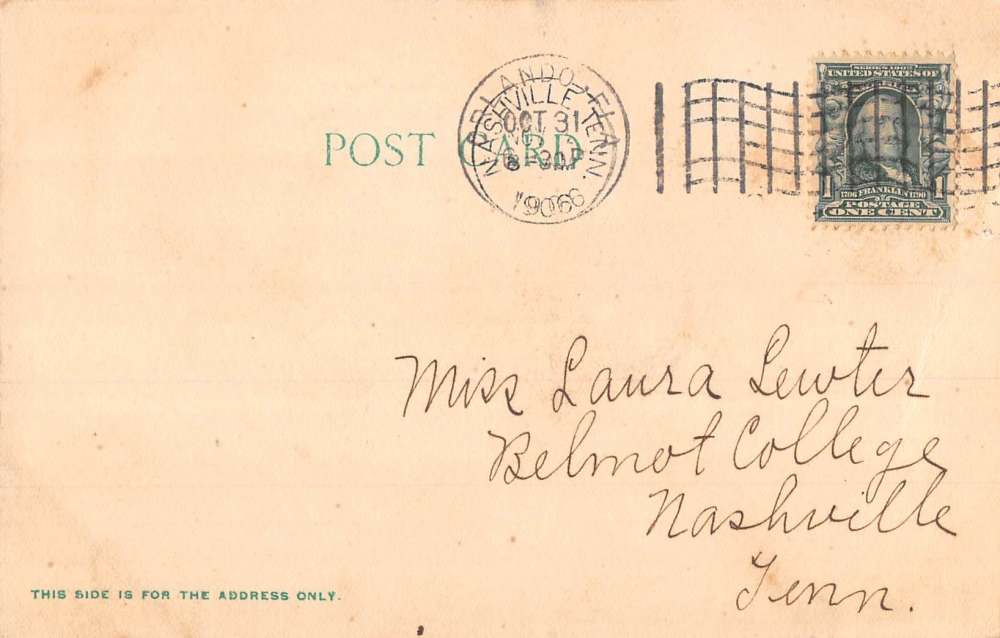 ORLANDO, FLA.
NASHVILLE, TENN.
OCT 31
8 30 P
1906
SERIES 1902
UNITED STATES OF
AMERICA
1 1
1706 FRANKLIN 1790
POSTAGE
ONE CENT
POST CARD
Miss Laura Lewter
Belmot College
Nashville
Tenn.
THIS SIDE IS FOR THE ADDRESS ONLY.